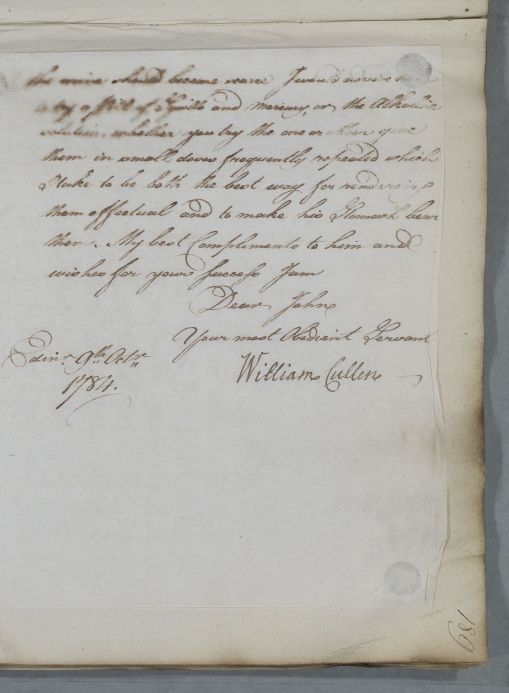 the urine should become scarce I would advise
to try a Pill of Squills and mercury, or the Alkaline
solution, whether you try the one or other give
them in small doses frequently repeated which
I take to be both the best way for rendering
them effectual and to make his Stomach bear
them. My best Compliments to him and
wishes for your success I am
Dear John
Your most Obedient Servant
Edinr 9th Octr
1784.
William Cullen
189